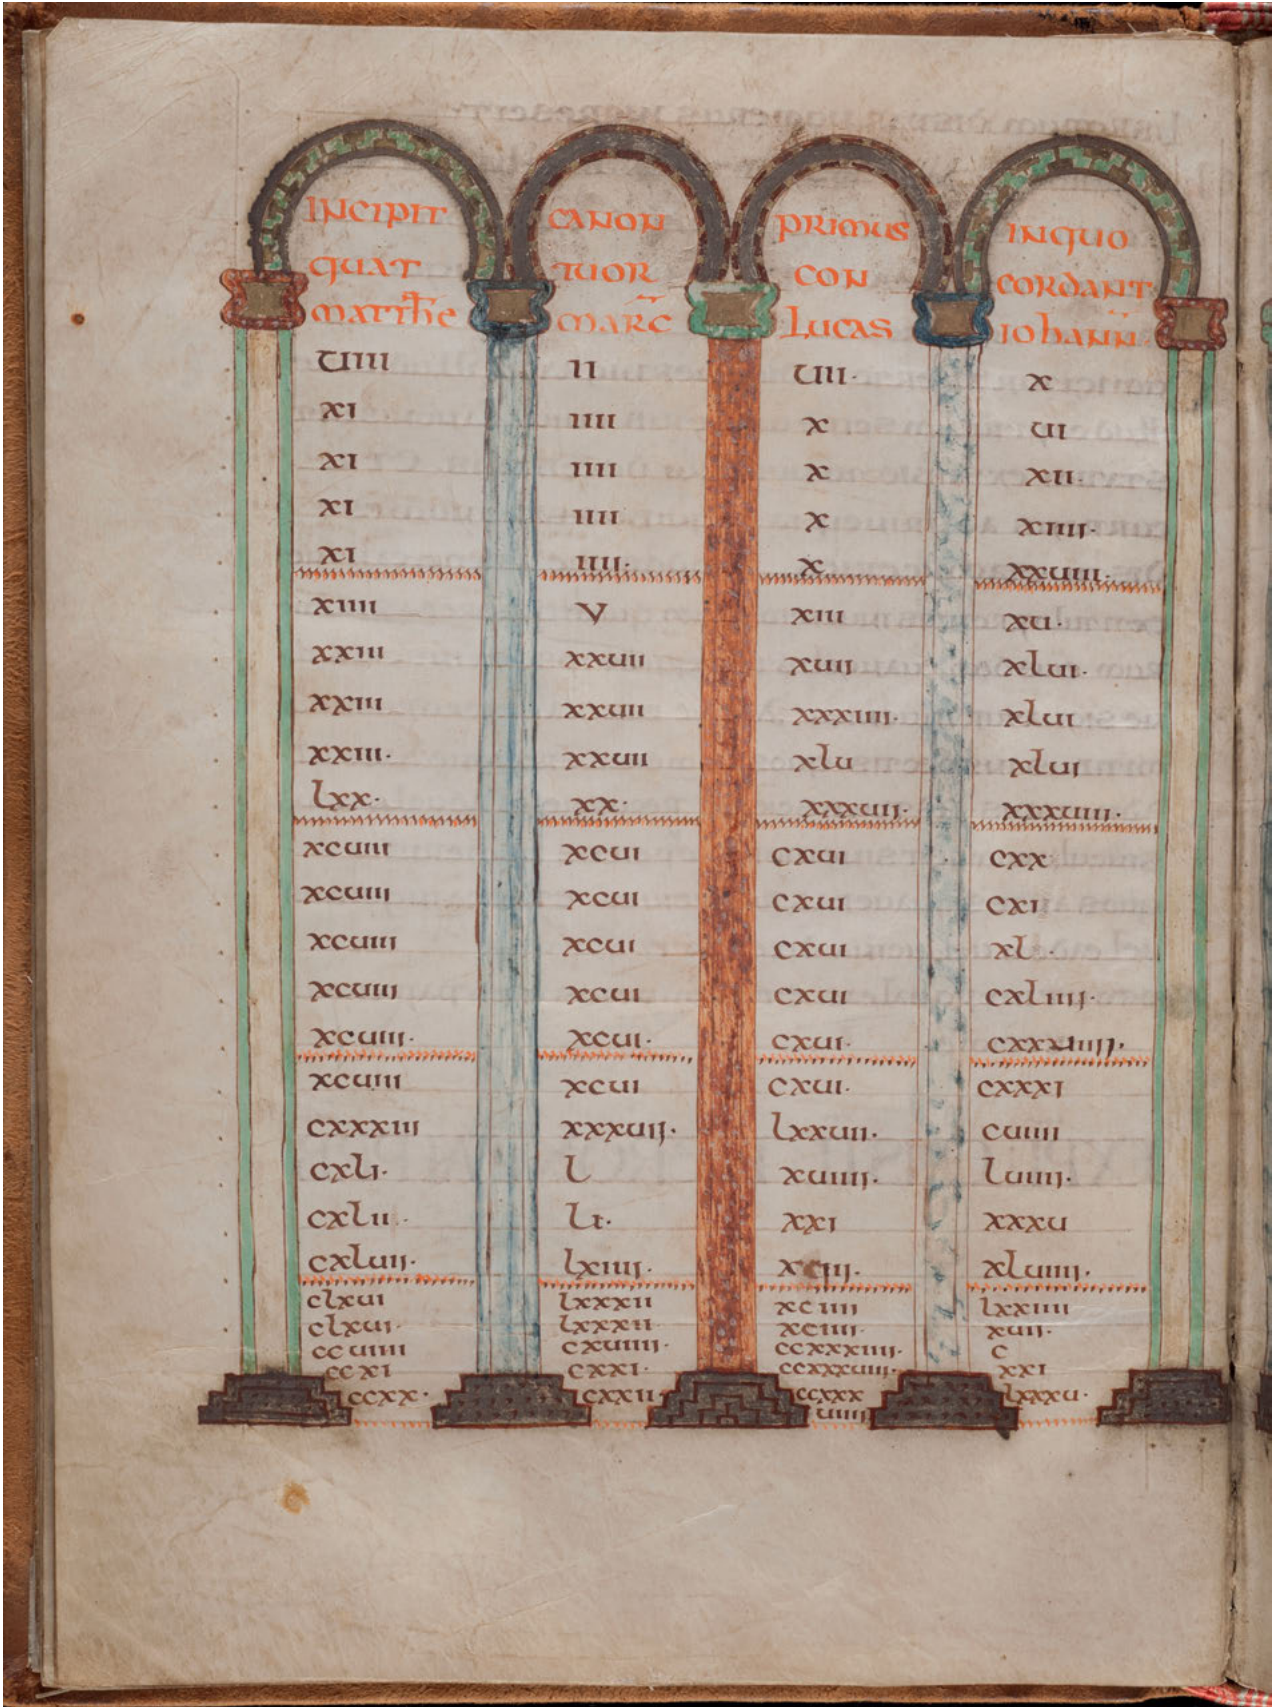 INCIPIT CANON PRIMUS INQUO
QUAT TUOR CON CORDANT
MATTHE MARC LUCAS IOHANN
uiiii ii uiii· x
xi iiii x ui
xi iiii x xii·
xi iiii x xiiii·
xi iiii· x xxuiii·
xiiii V xiii xu·
xxiii xxuii xuii xlui·
xxiii xxuii xxxiiii· xlui
xxiii· xxuii xlu xlui
lxx· xx· xxxuii· xxxuiii·
xcuiii xcui cxui cxx
xcuiii xcui cxui cxi
xcuiii xcui cxui xl·
xcuiii xcui cxui cxliiii·
xcuiii· xcui· cxui·
xcuiii xcui cxui· cxxxi
cxxxiii xxxuii· lxxuii· cuiiii
cxli· l xuiiii· luiiii·
cxlii· li· xxi xxxu
cxluii· lxiiii· xluiiii·
clxui lxxxii xciiii lxxiiii
clxui· lxxxii xciiii· xuii·
ccuiiii cxuiiii· ccxxxiiii· c
ccxi cxxi· ccxxxuiii· xxi
ccxx· cxxii ccxxx lxxxu·
uiiii